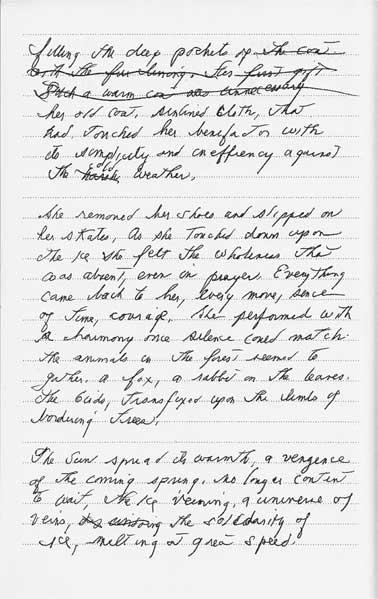 filling the deep pockets of the coat
with the fur lining. Her first gift
Such a warm coat was unnecessary
her old coat, unlined cloth, that
had touched her benefactor with
its simplicity and inefficiency against
the cold weather.
She removed her shoes and slipped on
her skates, As she touched down upon
the ice she felt the wholeness that
was absent, even in prayer. Everything
came back to her, every move, sense
of time, courage. She performed with
a harmony once silence could match.
the animals in the forest seemed to
gather. a fox, a rabbit on the leaves.
the birds, transfixed upon the limbs of
bordering trees.
The sun spread its warmth, a vengence
of the coming spring. no longer content
to wait, the ice veining, a universe of
veins, the solidarity of
ice, melting at great speed.